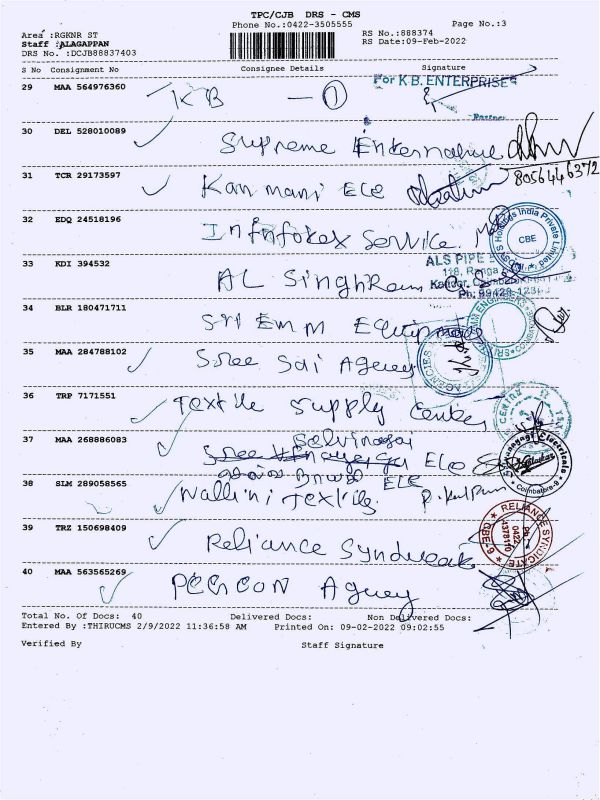 TPC/CJB DRS - CMS
Phone No.:0422-3505555
Page No.:3
Area :RGKNR ST
RS No.:888374
Staff :ALAGAPPAN
RS Date:09-Feb-2022
DRS No. :DCJB88837403
S No Consignment No Consignee Details Signature
29 MAA 564976360 KB - 1
For K.B. ENTERPRISES
Partner
30 DEL 528010089 Supreme
8056446372
31 TCR 29173597 Kanmani Ele
32 EDQ 24518196 Service
Holdings India Private Limited
CBE
33 KDI 394532 AL Singhram
ALS PIPE
118, Ranga
34 BLR 180471711 Sri Emm
35 MAA 284788102 Sree Sai Agency
AGENCIES
36 TRP 7171551 Textile Supply Center
37 MAA 268886083 Selvinayai
Ele
Ele
Electricals
Coimbatore-9
38 SLM 289058565 Nallini Textiles
39 TRZ 150698409 Reliance Syndicate
RELIANCE SYNDICATE
Ph
0422
4378110
CBE-9
40 MAA 563565269 Agency
Total No. Of Docs: 40 Delivered Docs: Non Delivered Docs:
Entered By :THIRUCMS 2/9/2022 11:36:58 AM Printed On: 09-02-2022 09:02:55
Verified By Staff Signature